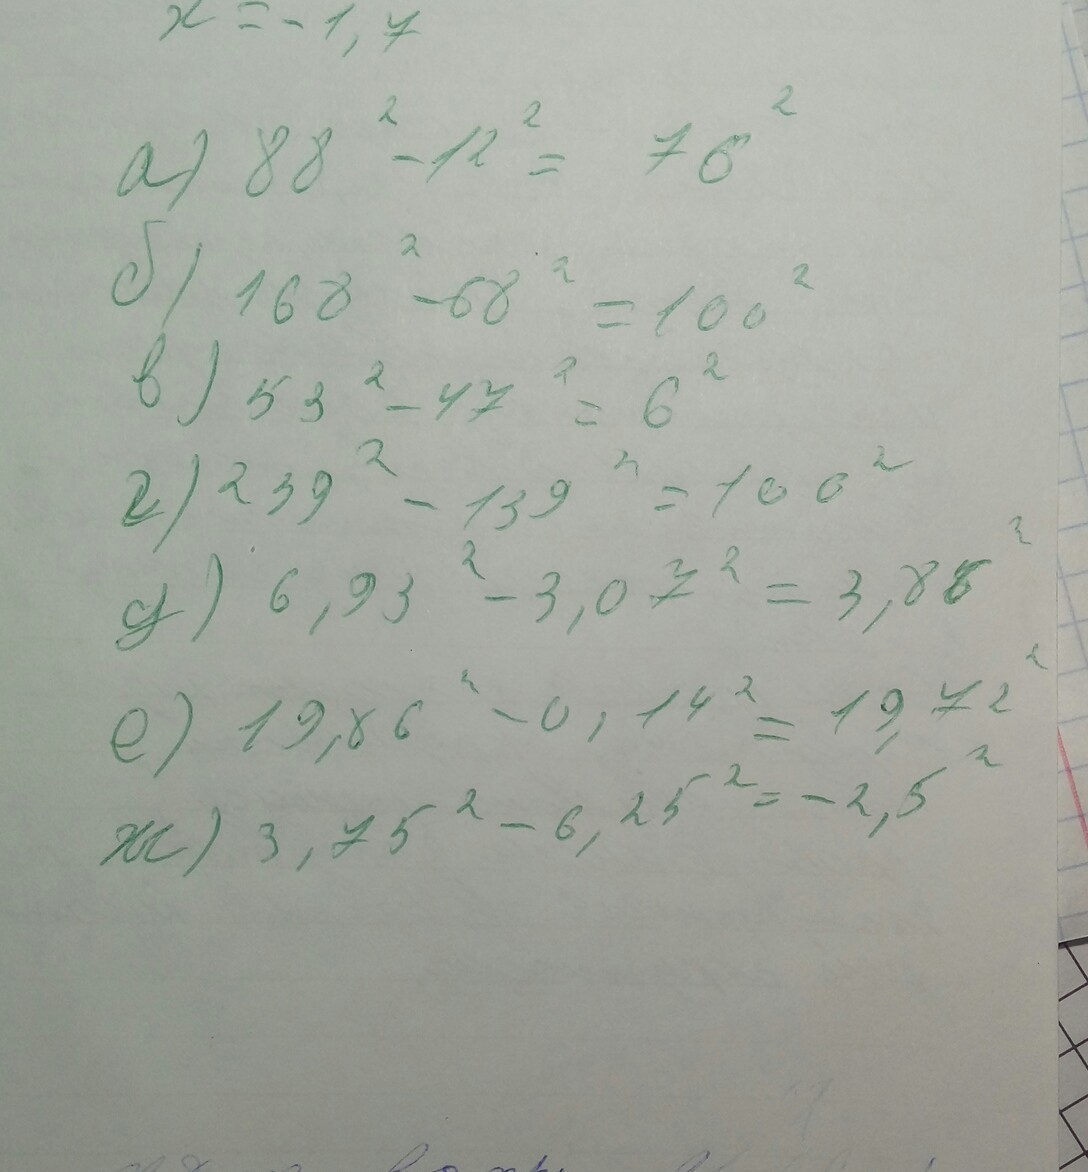 x = -1,7
а) 88² - 12² = 76²
б) 168² - 68² = 100²
в) 53² - 47² = 6²
г) 239² - 139² = 100²
д) 6,93² - 3,07² = 3,86²
е) 19,86² - 0,14² = 19,72²
ж) 3,75² - 6,25² = -2,5²